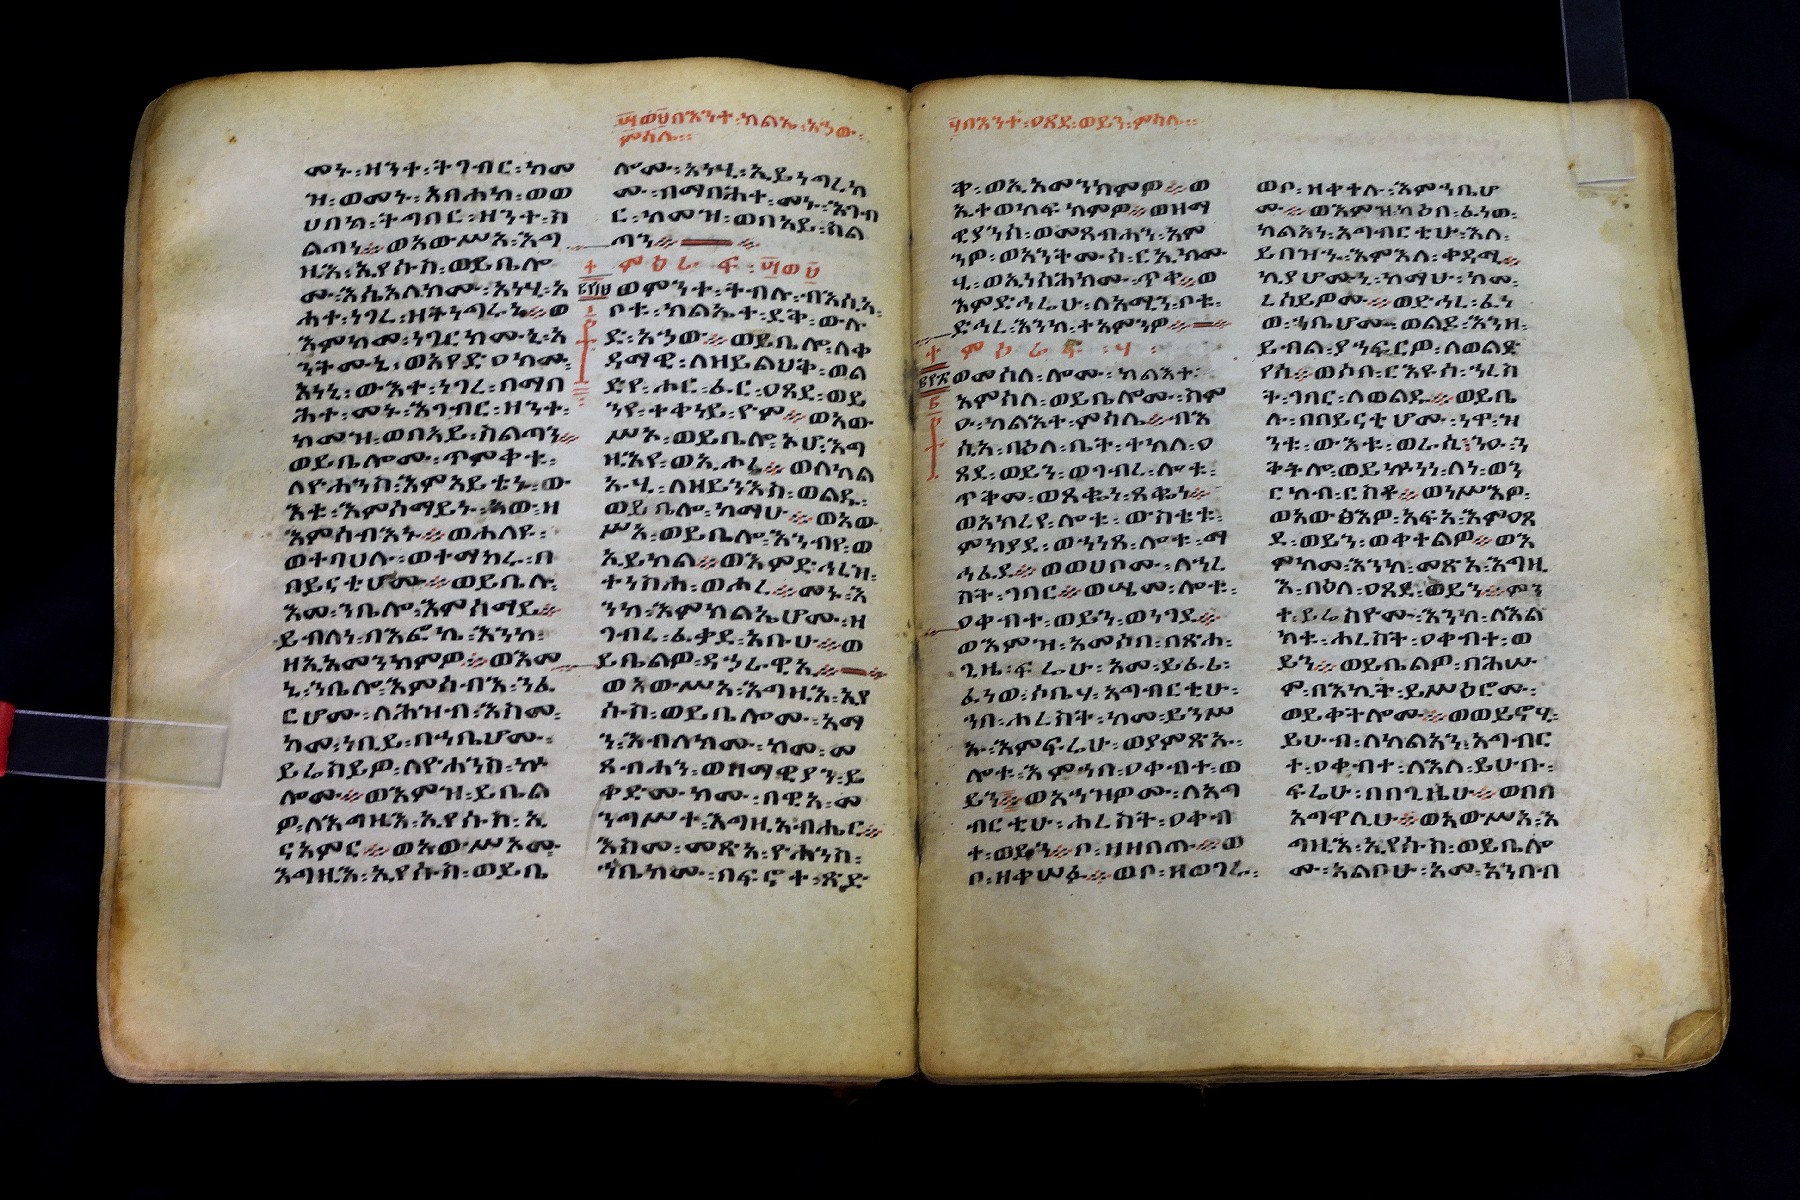 ፹ወ፱በእንተ፡ክልኤ፡አኃው፡
ምሳሌ፡፡
መኑ፡ዘንተ፡ትገብር፡ከመ
ዝ፡ወመኑ፡አብሐከ፡ወወ
ሀበከ፡ትግበር፡ዘንተ፡ስ
ልጣነ፡፡ወአውሥአ፡እግ
ዚአ፡ኢየሱስ፡ወይቤሎ
ሙ፡እሴአለክሙ፡አነሂ፡አ
ሐተ፡ነገረ፡ዘትነግሩኒ፡፡ወ
እምከመ፡ነገርክሙኒ፡አ
ንትሙኒ፡ወአየድዐክሙ፡
አነኒ፡ውእተ፡ነገረ፡በማበ
ሕተ፡መኑ፡እገብር፡ዘንተ፡
ከመዝ፡ወበአይ፡ስልጣን፡፡
ወይቤሎሙ፡ጥምቀቱ፡
ለዮሐንስ፡እምአይቴኑ፡ው
እቱ፡እምሰማይኑ፡አው፡ዘ
እምሰብእኑ፡፡ወሐለዩ፡
ወተባሀሉ፡ወተማከሩ፡በ
በይናቲሆሙ፡፡ወይቤሉ፡
እመ፡ንቤሎ፡እምሰማይ፡፡
ይብለነ፡በእፎኬ፡እንከ፡
ዘኢአመንክምዎ፡፡ወእመ
ኒ፡ንቤሎ፡እምሰብእ፡ንፈ
ርሆሙ፡ለሕዝብ፡እስመ፡
ከመ፡ነቢይ፡በኀቤሆሙ፡
ይሬስይዎ፡ለዮሐንስ፡ኵ
ሎሙ፡፡ወእምዝ፡ይቤል
ዎ፡ለእግዚእ፡ኢየሱስ፡ኢ
ናአምር፡፡ወአውሥአሙ፡
እግዚእ፡ኢየሱስ፡ወይቤ
ሎሙ፡አነሂ፡ኢይነግረክ
ሙ፡በማበሕተ፡መኑ፡እገብ
ር፡ከመዝ፡ወበአይ፡ስል
ጣን፡፡
ምዕራፍ፡፹ወ፱
ወምንተ፡ትብሉ፡ብእሲአ፡
ቦቱ፡ክልኤተ፡ደቅ፡ውሉ
ድ፡አኃው፡፡ወይቤሎ፡ለቀ
ዳማዊ፡ለዘይልህቅ፡ወል
ድየ፡ሑር፡ፊር፡ዐጸደ፡ወይ
ንየ፡ተቀነይ፡ዮም፡፡ወአው
ሥአ፡ወይቤሎ፡ኦሆ፡እግ
ዚእየ፡ወኢሖረ፡፡ወለካል
ኡሂ፡ለዘይንእስ፡ወልዱ፡
ወይቤሎ፡ከማሁ፡፡ወአው
ሥአ፡ወይቤሎ፡እንብየ፡ወ
ኢይክል፡፡ወእምድኅረዝ፡
ተነስሐ፡ወሖረ፡፡መኑ፡እ
ንከ፡እምክልኤሆሙ፡ዘ
ገብረ፡ፈቃደ፡አቡሁ፡፡ወ
ይቤልዎ፡ዳኃራዊአ፡፡
ወአውሥአ፡እግዚእ፡ኢየ
ሱስ፡ወይቤሎሙ፡አማ
ን፡እብለክሙ፡ከመ፡መ
ጸብሐን፡ወዘማዊያን፡ይ
ቀድሙክሙ፡በዊአ፡መ
ንግሥተ፡እግዚአብሔር፡፡
እስመ፡መጽአ፡ዮሐንስ፡
ኀቤክሙ፡በፍኖተ፡ጽድ
፺በእንተ፡ዐጸደ፡ወይን፡ምሳሌ፡፡
ቅ፡ወኢአመንክምዎ፡፡ወ
ኢተወከፍክምዎ፡፡ወዘማ
ዊያንሰ፡ወመጸብሓን፡አም
ንዎ፡ወአንትሙሰ፡ርኢክሙ
ሂ፡ወኢነሳሕክሙ፡ጥቀ፡፡ወ
እምድኅሬሁ፡ለአሚን፡ቦቱ፡
ድኅረ፡እንከ፡ተአምንዎ፡፡
ምዕራፍ፡፺፡
ወመሰለ፡ሎሙ፡ካልእተ፡
እምሳለ፡ወይቤሎሙ፡ስም
ዑ፡ካልእተ፡ምሳሌ፡፡ብእ
ሲአ፡በዕለ፡ቤት፡ተከለ፡ዐ
ጸደ፡ወይን፡ወገብረ፡ሎቱ፡
ጥቅመ፡ወጸቈነ፡ጸቈነ፡፡
ወአክረየ፡ሎቱ፡ውስቴቱ፡
ምክያደ፡ወኀነጸ፡ሎቱ፡ማ
ኅፈደ፡፡ወወሀቦሙ፡ለኀረ
ስት፡ገባር፡፡ወሤመ፡ሎቱ፡
ዐቀብተ፡ወይን፡ወነገደ፡፡
ወእምዝ፡አመሰበ፡በጽሐ፡
ጊዜ፡ፍሬሁ፡አመ፡ይፈሪ፡
ፈነወ፡ሶቤሃ፡አግብርቲሁ፡
ኀበ፡ሐረስት፡ከመ፡ይንሥ
ኡ፡እምፍሬሁ፡ወያምጽኡ፡
ሎቱ፡እምኀበ፡ዐቀብተ፡ወ
ይን፡፡ወአኀዝዎሙ፡ለአግ
ብርቲሁ፡ሐረስት፡ዐቀብ
ተ፡ወይን፡፡ቦ፡ዘዘበጡ፡፡ወ
ቦ፡ዘቀሠፉ፡፡ወቦ፡ዘወገሩ፡
ወቦ፡ዘቀተሉ፡እምኀቤሆ
ሙ፡፡ወእምዝ፡ካዕበ፡ፈነወ፡
ካልአነ፡አግብርቲሁ፡እለ፡
ይበዝኁ፡እምእለ፡ቀዳሚ፡፡
ኪያሆሙኒ፡ከማሁ፡ከመ፡
ረሰይዎሙ፡፡ወድኅረ፡ፈነ
ወ፡ኀቤሆሙ፡ወልዶ፡እንዘ፡
ይብል፡ያኀፍርዎ፡ለወልድ
የሰ፡፡ወሶበ፡ርእዩሰ፡ኀረስ
ት፡ገባር፡ለወልዱ፡፡ወይቤ
ሉ፡በበይናቲሆሙ፡ነዋ፡ዝ
ንቱ፡ውእቱ፡ወራሲ፡ንዑ፡ን
ቅትሎ፡ወይኵነነ፡ለነ፡ወን
ርከብ፡ርስቶ፡፡ወነሥእዎ፡
ወአውፅእዎ፡አፍአ፡እምዐጸ
ደ፡ወይን፡ወቀተልዎ፡፡ወእ
ምከመ፡እንከ፡መጽአ፡እግዚ
አ፡በዕለ፡ዐጸደ፡ወይን፡፡ምን
ተ፡ይሬስዮሙ፡እንከ፡ለእል
ክቱ፡ሐረስት፡ዐቀብተ፡ወ
ይን፡፡ወይቤልዎ፡በሕሡ
ም፡በእኪት፡ይሥዕሮሙ፡
ወይቀትሎሙ፡፡ወወይኖሂ፡
ይሁብ፡ለካልአን፡አግብር
ት፡ዐቀብተ፡ለእለ፡ይሁቡ፡
ፍሬሁ፡በበጊዜሁ፡፡ወበበ
እግዋሊሁ፡፡ወአውሥአ፡እ
ግዚአ፡ኢየሱስ፡ወይቤሎ
ሙ፡አልቦሁ፡አመ፡አንበብ